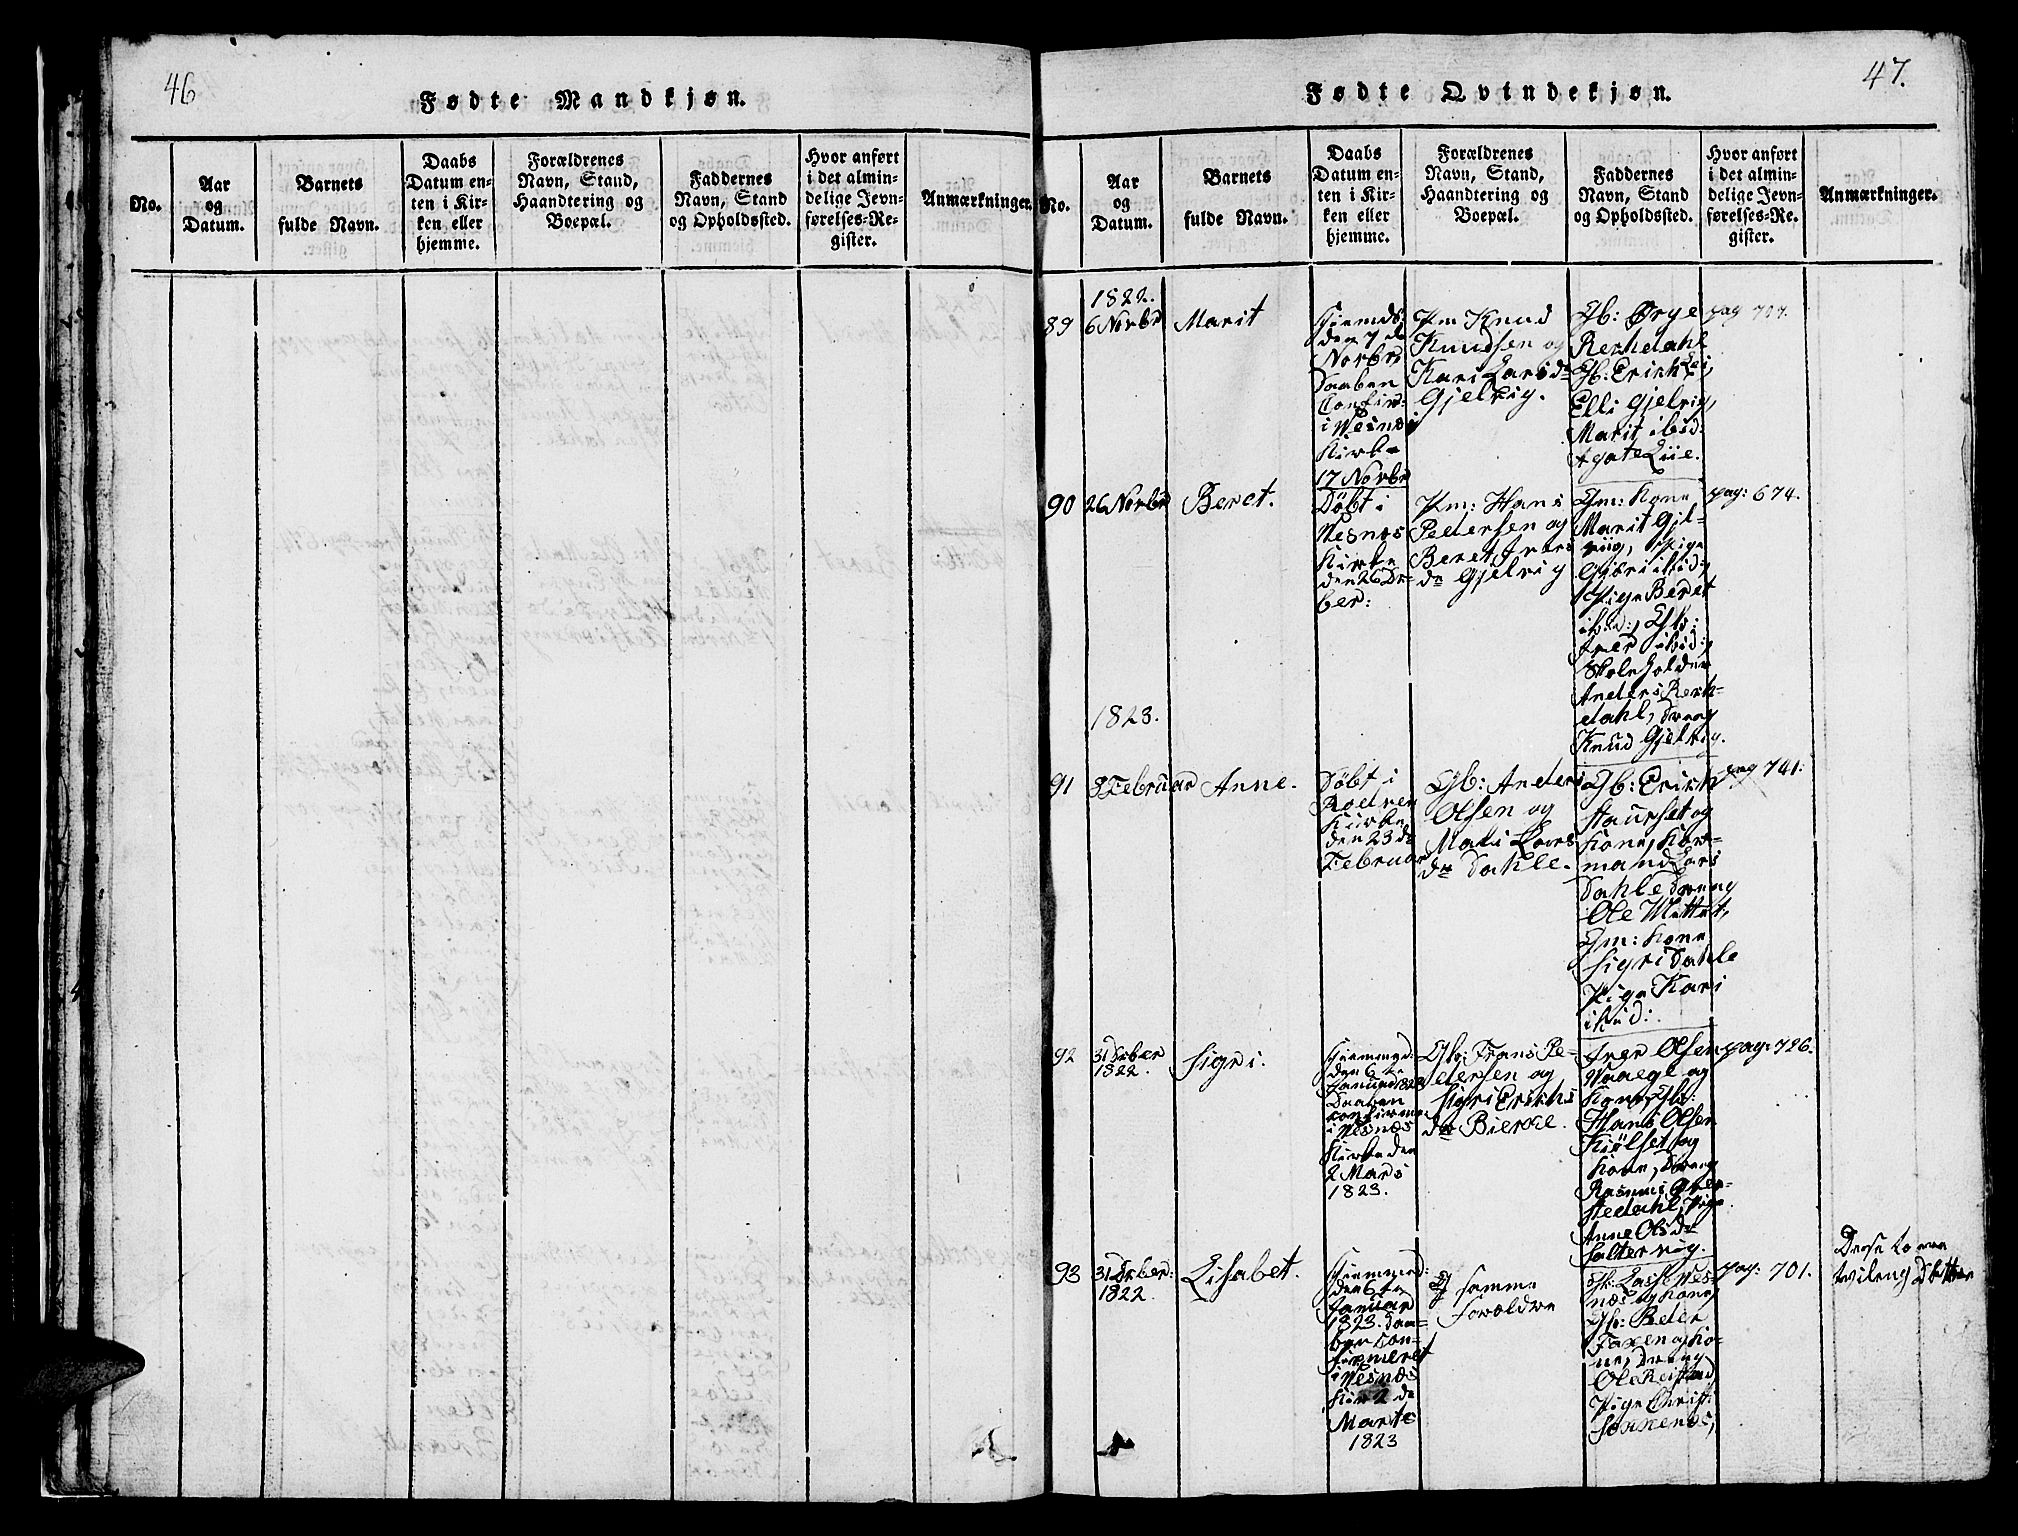 46
Fødte Mandkjøn.
No.
Aar
og
Datum.
Barnets
fulde Navn.
Daabs
Datum en-
ten i Kir-
ken eller
hjemme.
Forældrenes
Navn, Stand,
Haandtering og
Boepæl.
Faddernes
Navn, Stand
og Opholdssted.
Hvor anført
i det almin-
delige Jevn-
førelses-Re-
gister.
Anmærkninger.
47.
Fødte Qvindekjøn.
No.
Aar
og
Datum.
Barnets
fulde Navn.
Daabs
Datum en-
ten i Kir-
ken eller
hjemme.
Forældrenes
Navn, Stand,
Haandtering og
Boepæl.
Faddernes
Navn, Stand
og Opholdssted.
Hvor anført
i det almin-
delige Jevn-
førelses-Re-
gister.
Anmærkninger.
89
1822.
6 Novbr
Marit
den 7 de
Novbr
Daaben
i Vesnæs
Kirke
17 Novbr
Pm Knud
Knudsen og
Kari Larsd
Gjelvig.
Gb: Ørge
Gb: Erich
Elli Gjelvig,
Marit ibid:
pag 707.
90
26 Novbr
Beret.
Døbt i
Vesnæs
Kirke
den 26 De-
ber:
Pm: Hans
Pedersen og
Beret Ivers
da Gjelvig
Gm: Kone
Marit Gjel-
vig, Pige
ibid:
Pige Beret
ibid: Gb:
Iver ibid:
Skoleholder
Anders
dahl, Dreng
Knud Gjelvig.
pag: 674.
1823.
91
3 Februar
Anne.
Døbt i
Kirke
den 23 de
Februar
Gb: Anders
Olsen og
Mari Lars
da Dahle.
Gb: Erich
Staurset og
Kone,
mand Lars
Dahle Dreng
Ole
Gm: Kone
Sigri Dahle
Pige Kari
ibid:
pag 741.
92
31 Dcber
1822.
Sigri.
Hiemmed:
den 6 te
Januar 1823
Daaben
i Vesnæs
Kirke den
2 Mars
1823.
Gb: Frans Pe-
dersen og
Sigri Erichs
da Bierke.
Iver Olsen
Vaage og
Kone, Gb:
Hans Olsen
Kiølset og
Kone, Dreng
Rasmus
Pige
Anne Olsda
Saltervig.
pag: 726.
93
31 Dcber:
1822.
Lisabet.
Hiemmed:
den 6 te
Januar
1823. Daa-
ben Con-
firmeret
i Vesnæs
Kir 2 de
Marts
1823
samme
Forældre
Gb: Lasse Ves-
næs og Kone,
Gb: Peder
Faxen og Ko-
ne, Dreng
Ole
Pige Christ:
Sønnenæs,
pag: 701.
Disse to ere
tvilling Døttre